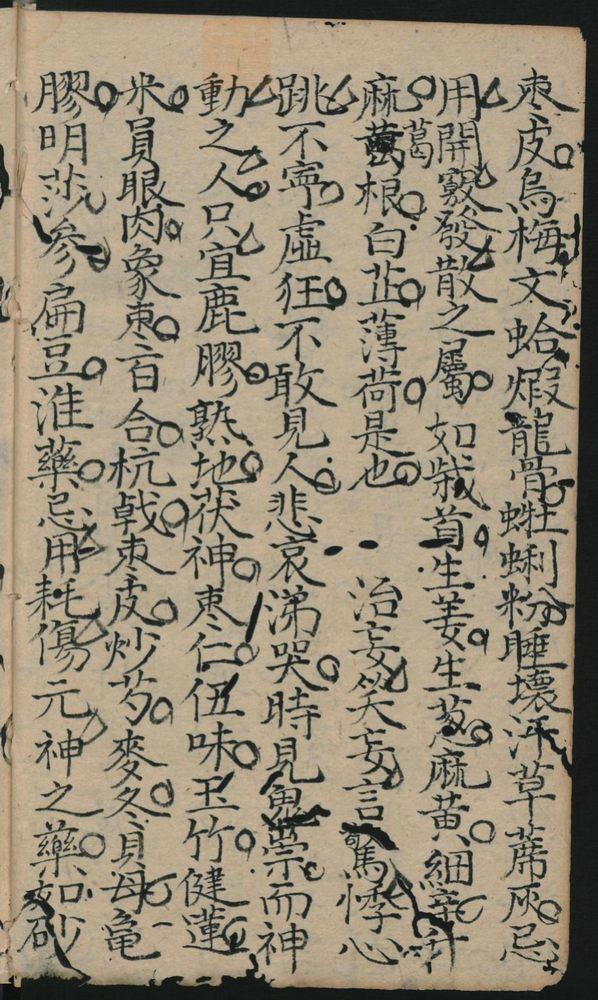 枣皮烏梅文蛤煆龍骨蚌蜊粉睡壞汗草蓆灰忌
用開竅發散之屬如柴首生姜生葱麻黃細辛升
麻葛根白芷薄荷是也 治妄笑妄言驚悸心
跳不寧虛狂不敢見人悲哀涕哭時見鬼祟而神
動之人只宜鹿膠熟地茯神枣仁伍味玉竹健蓮
米員眼肉象束百合杭戟枣皮炒芍麥冬貝母亀
膠明莎參扁豆淮藥忌用耗傷元神之藥如砂